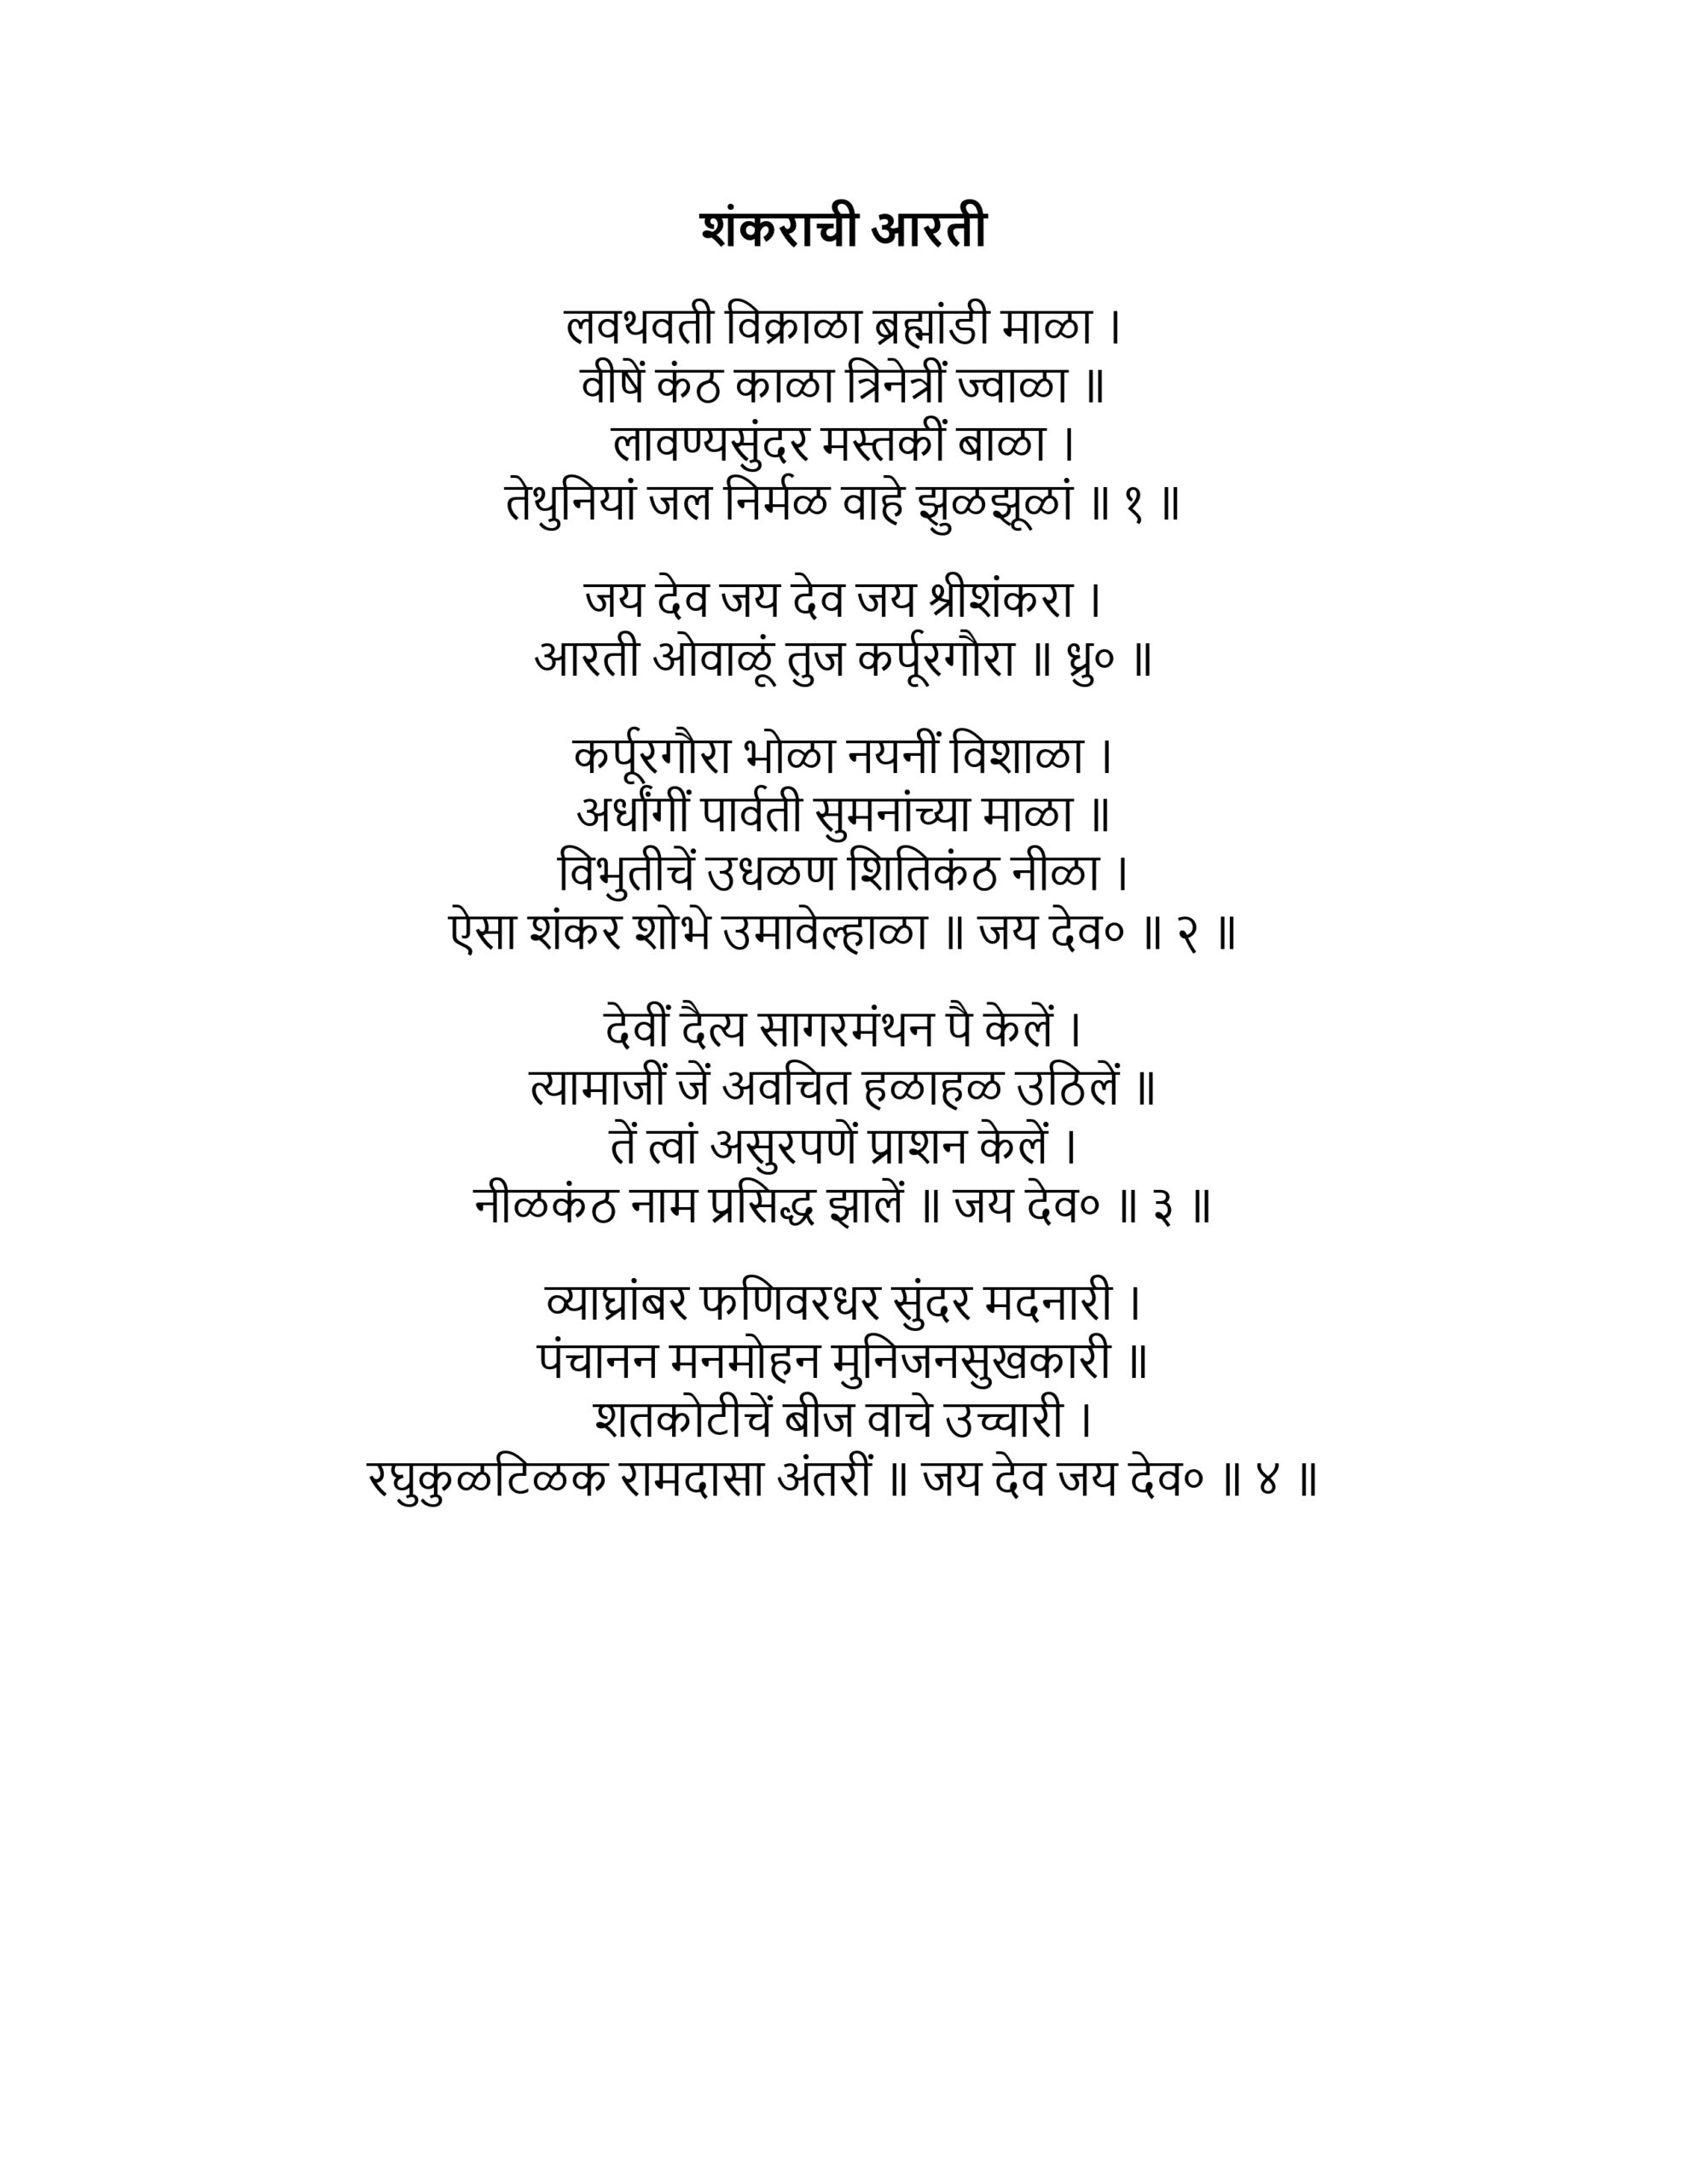 शंकराची आरती
लवथवती विक्राळा ब्रह्मांडी माळा ।
वीषें कंठ काळा त्रिनेत्रीं ज्वाळा ॥
लावण्यसुंदर मस्तकीं बाळा ।
तेथुनियां जल निर्मळ वाहे झुळझूळां ॥ १ ॥
जय देव जय देव जय श्रीशंकरा ।
आरती ओवाळूं तुज कर्पूरगौरा ॥ ध्रु० ॥
कर्पूरगौरा भोळा नयनीं विशाळा ।
अर्धांगीं पार्वती सुमनांच्या माळा ॥
विभुतीचें उधळण शितिकंठ नीळा ।
ऐसा शंकर शोभे उमावेल्हाळा ॥ जय देव० ॥ २ ॥
देवीं दैत्य सागरमंथन पै केलें ।
त्यामाजीं जें अवचित हळाहळ उठिलें ॥
तें त्वां असुरपणें प्राशन केलें ।
नीळकंठ नाम प्रसिद्ध झालें ॥ जय देव० ॥ ३ ॥
व्याघ्रांबर फणिवरधर सुंदर मदनारी ।
पंचानन मनमोहन मुनिजनसुखकारी ॥
शतकोटीचें बीज वाचे उच्चारी ।
रघुकुळटिळक रामदासा अंतरीं ॥ जय देव जय देव० ॥ ४ ॥